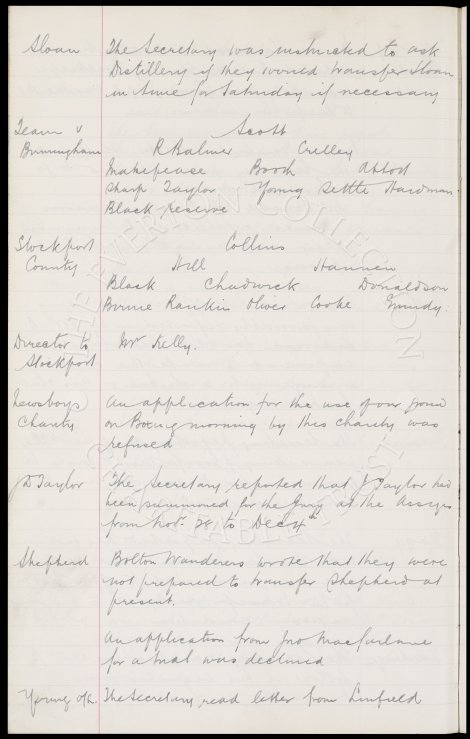 Sloan The Secretary was instructed to ask
Distillery if they would transfer Sloan
in time for Saturday if necessary
Team v Scott
Birmingham R Balmer Crelley
Makepeace Booth Abbott
Sharp Taylor Young Settle Hardman
Black reserve
Stockport Collins
County Hill Hannen
Black Chadwick Donaldson
Birnie Rankin Oliver Cooke Grundy.
Director to Mr Kelly.
Stockport
Newsboys An application for the use of our ground
Charity on Boxing morning by this charity was
refused
J D Taylor The Secretary reported that J Taylor had
been summoned for the Jury at the Assizes
from Novr. 28 to Dec 4th
Shepherd Bolton Wanderers wrote that they were
not prepared to transfer Shepherd at
present.
An application from Jno Macfarlane
for a trial was declined
Young The Secretary read letter from Linfield
THE EVERTON COLLECTION
CHARITABLE TRUST